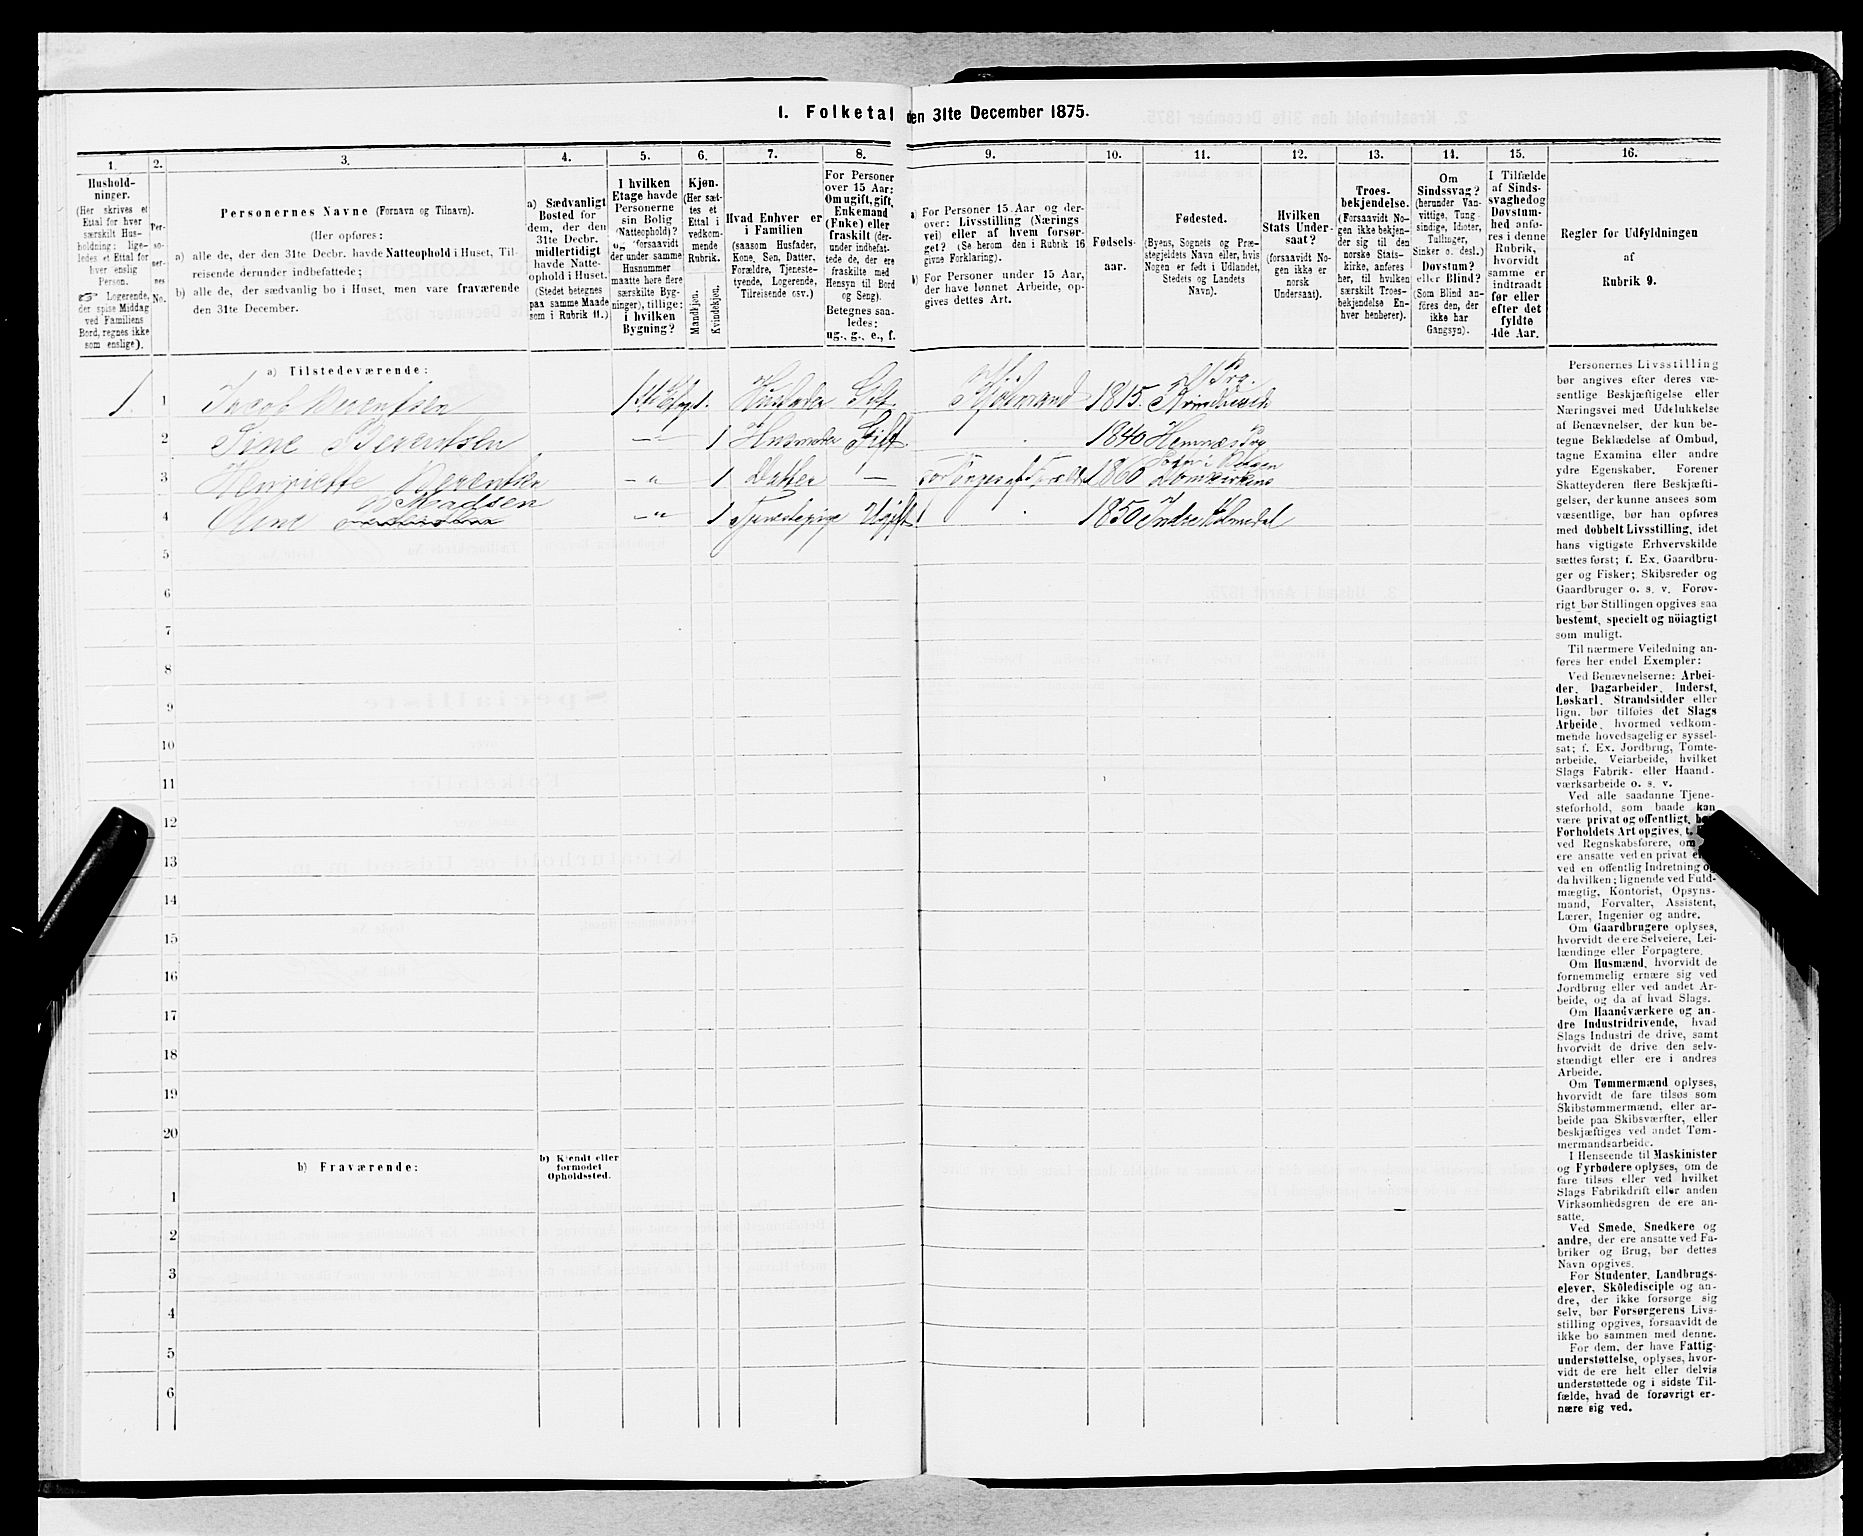 1. Folketal den 31te December 1875.
1. 2. 3. 4. 5. 6. 7. 8. 9. 10. 11. 12. 13. 14. 15. 16.
Hushold-
ninger.
(Her skrives et
Ettal for hver
særskilt Hus-
holdning; lige-
ledes et Ettal for
hver enslig
Person.
☞ Logerende,
der spise Middag
ved Familiens
Bord, regnes ikke
som enslige).
Per-
so-
ner-
nes
No.
Personernes Navne (Fornavn og Tilnavn).
(Her opføres:
a) alle de, der den 31te Decbr. havde Natteophold i Huset, Til-
reisende derunder indbefattede;
b) alle de, der sædvanlig bo i Huset, men vare fraværende
den 31te December.
a) Sædvanligt
Bosted for
dem, der den
31te Decbr.
midlertidigt
havde Natte-
ophold i Huset.
(Stedet betegnes
paa samme Maade
som i Rubrik 11.)
I hvilken
Etage havde
Personerne
sin Bolig
(Natteophold)?
og (forsaavidt
der under samme
Husnummer
maatte høre flere
særskilte Byg-
ninger), tillige:
i hvilken
Bygning?
Kjøn.
(Her sæt-
tes et
Ettal i
vedkom-
mende
Rubrik.
Mandkjøn.
Kvindekjøn.
Hvad Enhver er
i Familien
(saasom Husfader,
Kone, Søn, Datter,
Forældre, Tjeneste-
tyende, Logerende,
Tilreisende osv.)
For Personer
over 15 Aar:
Om ugift, gift,
Enkemand
(Enke) eller
fraskilt (der-
under indbefat-
tede de, der ere
fraskilte med
Hensyn til Bord
og Seng).
Betegnes saa-
ledes:
ug., g., e., f.
a) For Personer 15 Aar og der-
over: Livsstilling (Nærings
vei) eller af hvem forsør-
get? (Se herom den i Rubrik 16
givne Forklaring).
b) For Personer under 15 Aar,
der have lønnet Arbeide, op-
gives dettes Art.
Fødsels-
aar.
Fødested.
(Byens, Sognets og Præ-
stegjeldets Navn eller, hvis
Nogen er født i Udlandet,
Stedets og Landets
Navn).
Hvilken
Stats Under-
saat?
(forsaavidt No-
gen ikke er
norsk
Undersaat).
Troes-
bekjendelse.
(Forsaavidt No-
gen ikke bekjen-
der sig til den
norske Stats-
kirke, anføres
her, til hvilken
særskilt Troes-
bekjendelse En-
hver henhører).
Om
Sindssvag?
(herunder Van-
vittige, Tung
sindige, Idioter,
Tullinger,
Sinker o. desl.)
Døvstum?
eller Blind?
(Som Blind an-
føres den, der
ikke har
Gangsyn).
I Tilfælde
af Sinds-
svaghed og
Døvstum-
hed anfø-
res i denne
Rubrik,
hvorvidt
samme er
indtraadt
før eller
efter det
fyldte
4de Aar.
Regler før Udfyldningen
af
Rubrik 9.
a) Tilstedeværende:
1. 1 Jacob Berentsen 1ste Etag. 1. Husfader Gift 1815.
2 Sine Berentsen 1 Husmoder Gift 1840 Hemnæs Prg
3 Henriette Berentsen 1 Datter 1860
4 Oline Madsen 1 Tjenestepige Ugift 1850
5
6
7
8
9
10
11
12
13
14
15
16
17
18
19
20
b) Fraværende:
b) Kjendt eller
formodet
Opholdssted.
1
2
3
4
5
6
Personernes Livsstilling
bør angives efter deres væ-
sentlige Beskjæftigelse eller
Næringsvei med Udelukkelse
af Benævnelser, der kun be-
tegne Beklædelse af Ombud,
tagne Examina eller andre
ydre Egenskaber. Forener
Skatteyderen flere Beskjæfti-
gelser, der kunne ansees som
væsentlige, bør han opføres
med dobbelt Livsstilling, idet
hans vigtigste Erhvervskilde
sættes først; f. Ex. Gaardbru-
ger og Fisker; Skibsreder og
Gaardbruger o. s. v. Forøv-
rigt bør Stillingen opgives saa
bestemt, specielt og nöiagtigt
som muligt.
Til nærmere Veiledning an-
føres her endel Exempler:
Ved Benævnelserne: Arbei-
der, Dagarbeider, Inderst,
Løskarl, Strandsidder eller
lign. bør tilføies det Slags
Arbeide, hvormed vedkom-
mende hovedsagelig er syssel-
sat; f. Ex. Jordbrug, Tomte-
arbeide, Veiarbeide, hvilket
Slags Fabrik- eller Haand-
værksarbeide o. s. v.
Ved alle saadanne Tjene-
steforhold, som baade kan
være privat og offentligt,
Forholdets Art opgives,
ved Regnskabsførere, om
ere ansatte ved en privat
ved en offentlig Indretning
da hvilken; lignende ved Fuld-
mægtig, Kontorist, Opsyns-
mand, Forvalter, Assistent,
Lærer, Ingeniør og andre.
Om Gaardbrugere oplyses,
hvorvidt de ere Selveiere, Lei-
lændinge eller Forpagtere.
Om Husmænd, hvorvidt de
fornemmelig ernære sig ved
Jordbrug eller ved andet Ar-
beide, og da af hvad Slags.
Om Haandværkere og an-
dre Industridrivende, hvad
Slags Industri de drive, samt
hvorvidt de drive den selv-
stændigt eller ere i andres
Arbeide.
Om Tømmermænd oplyses,
hvorvidt de fare tilsøs som
Skibstømmermænd, eller ar-
beide paa Skibsværfter, eller
beskjæftiges ved andet Tøm-
mermandsarbeide.
I Henseende til Maskinister
og Fyrbødere oplyses, om de
fare tilsøs eller ved hvilket
Slags Fabrikdrift eller anden
Virksomhedsgren de ere an-
satte.
Ved Smede, Snedkere og
andre, der ere ansatte ved Fa-
briker og Brug, bør dettes
Navn opgives.
For Studenter, Landbrugs-
elever, Skôledisciple og an-
dre, der ikke forsørge sig
selv, bør Forsørgerens Livs-
stilling opgives, forsaavidt de
ikke bo sammen med denne.
For dem, der have Fattig-
understøttelse, oplyses, hvor-
vidt de ere helt eller delvis
understøttede og i sidste Til-
fælde, hvad de forøvrigt er-
nære sig ved.